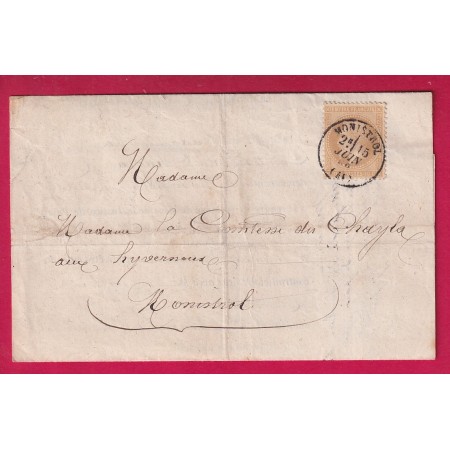 MONISTROL
2E/15
JUIN
(41)
Madame
Madame la Comtesse du Chayla
aux hyvernoux
Monistrol